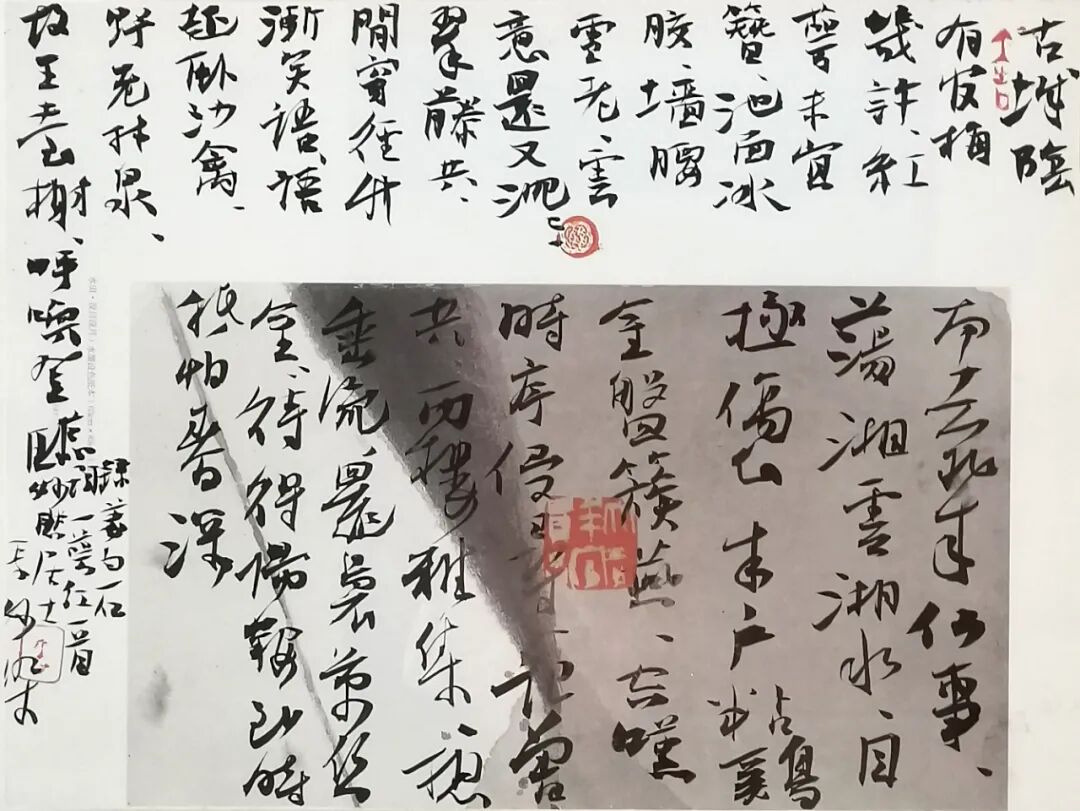 古城陰
有官梅
幾許、紅
萼未宜
簪、池面冰
膠、墙腰
雪老、雲
意還又沉
翠藤共、
閒穿徑竹
漸笑語、語
起卧沙禽、
野老林泉、
故王臺榭、呼唤登臨
南去北来何事、
蕩湘雲湘水、目
極傷心朱户粘鷄
金盤簇燕、空嘆
時序侵尋記曾
共西樓雅集想
垂、還裊萬丝
金、待得得歸鞍到時
祇怕春深
録姜白石
词一萼红一首
妙然居士